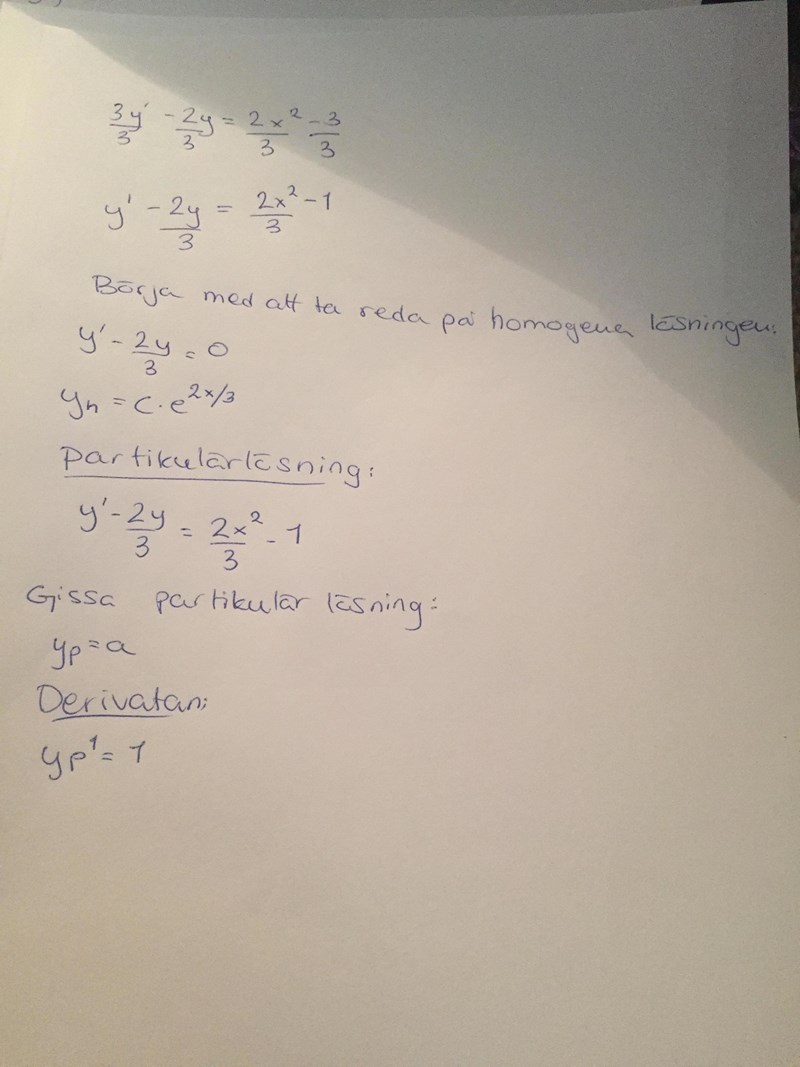 3y'/3 - 2y/3 = 2x²/3 - 3/3
y' - 2y/3 = 2x²/3 - 1
Börja med att ta reda på homogena lösningen:
y' - 2y/3 = 0
yh = C · e^2x/3
Partikulärlösning:
y' - 2y/3 = 2x²/3 - 1
Gissa partikulär lösning:
yp = a
Derivatan:
yp' = 1